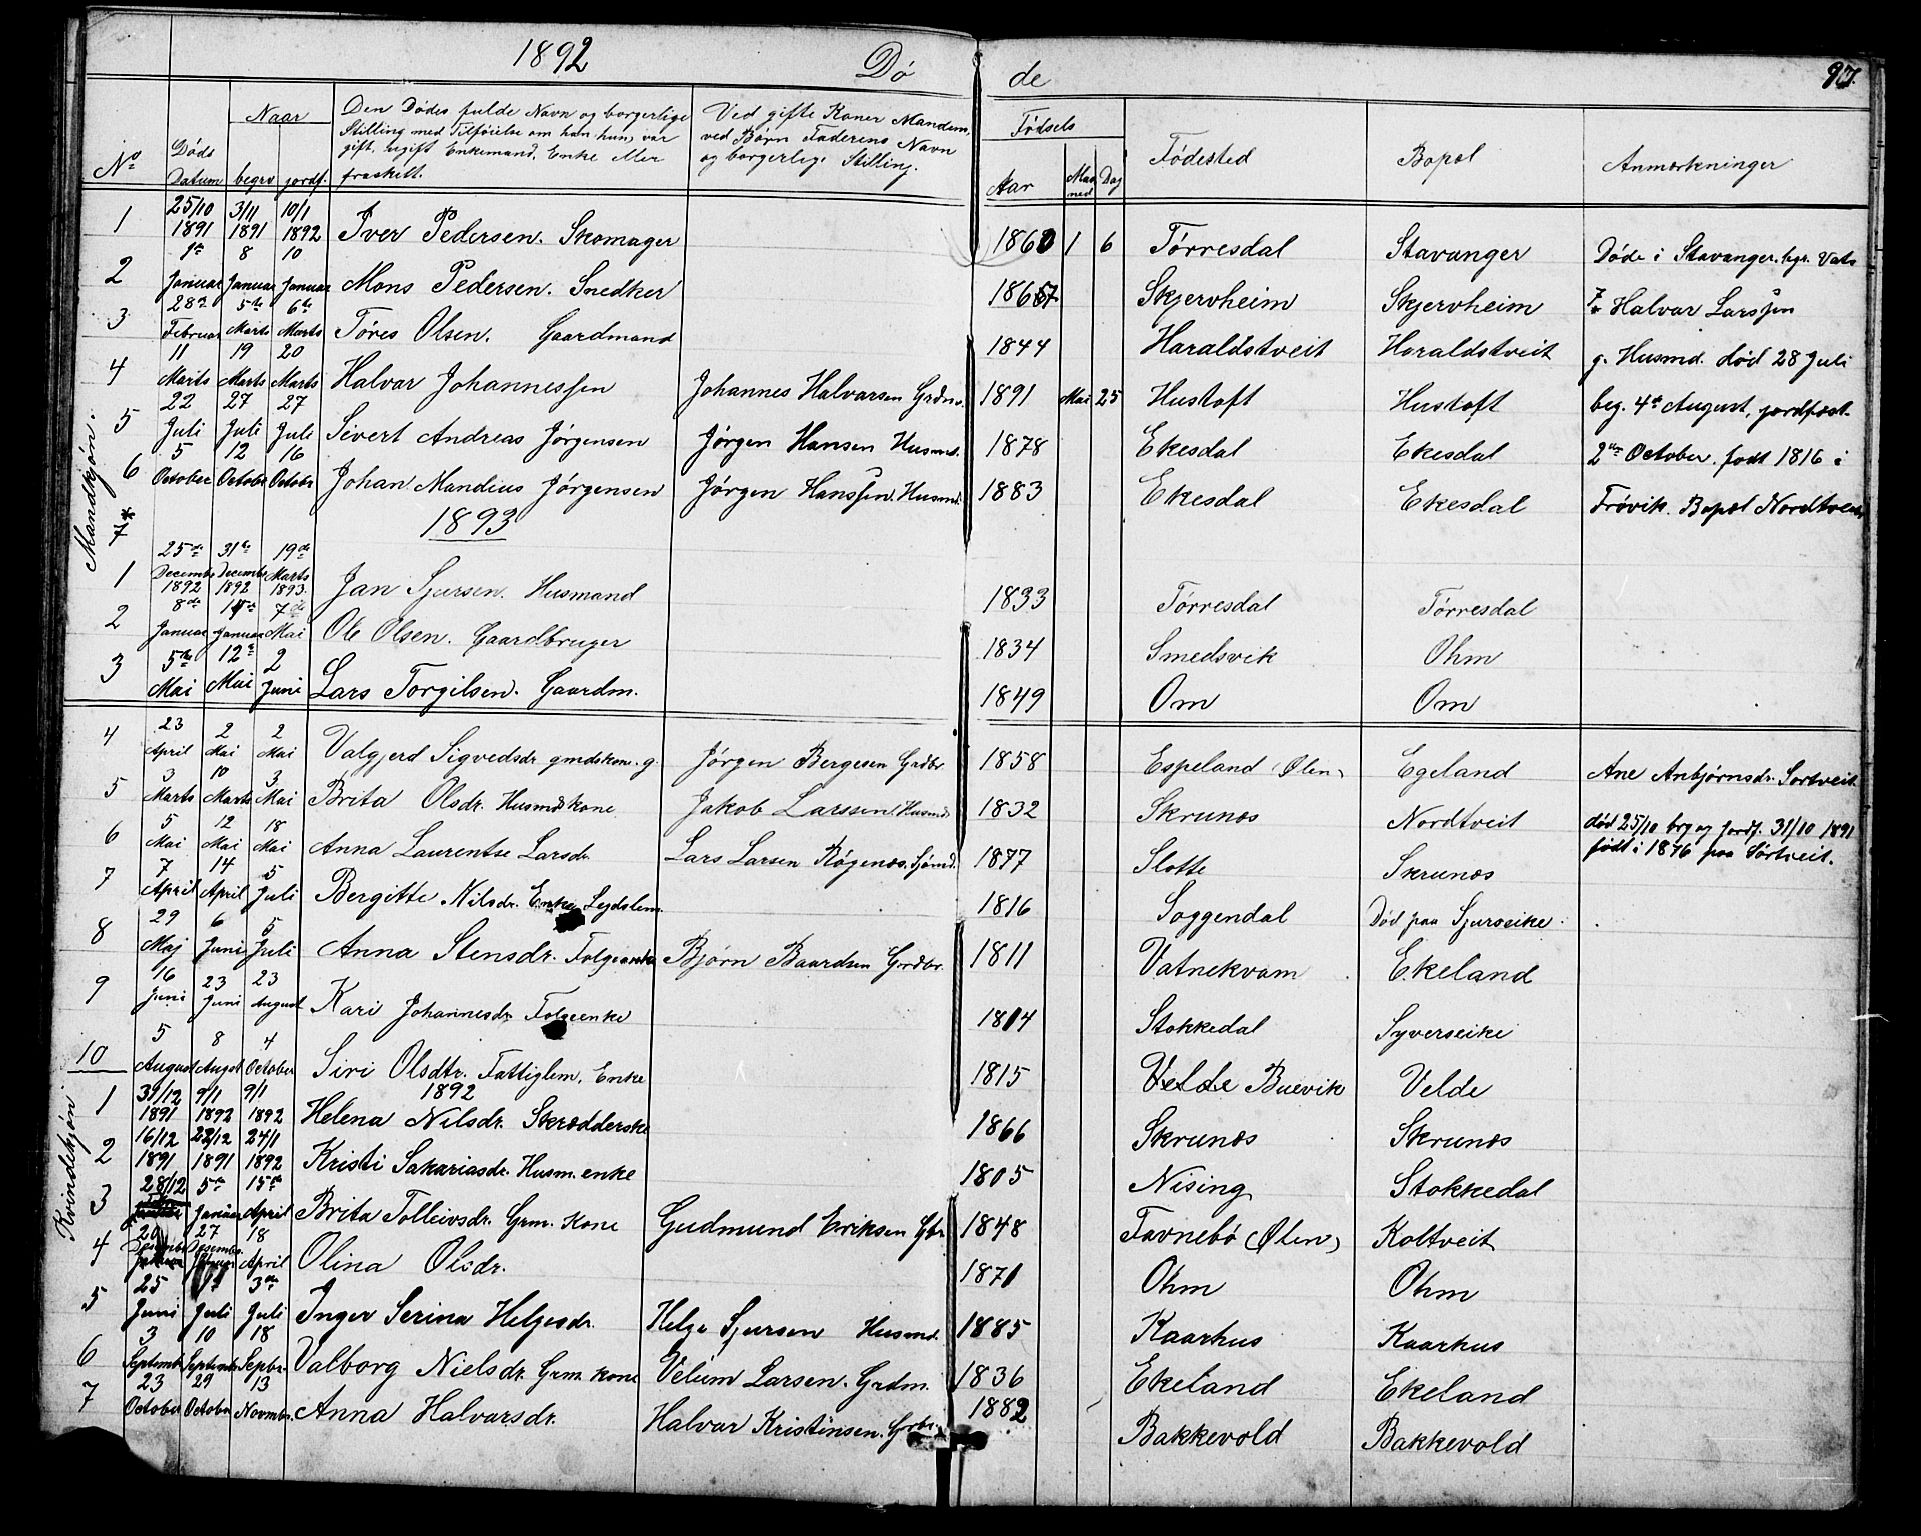 1892 Dø de 97.
No Døds Datum Naar begrv jordf. Den Dødes fulde Navn og borgerlige Stilling med Tilføielse om han/hun var gift, ugift Enkemand, Enke eller fraskilt. Ved gifte Koner Mandens, ved Børn Faderens Navn og borgerlige Stilling. Fødsels Aar Maaned Dag Fødested Bopæl Anmærkninger
Mandkjøn.
1 25/10 1891 3/11 1891 10/1 1892 Iver Pedersen. Skomager 1860 1 6 Tørresdal Stavanger Døde i Stavanger. bgr. Vats
2 1ste Januar 8 Januar 10 Januar Mons Pedersen. Snedker 1867 Skjervheim Skjervheim 7 * Halvar Larssen
3 28de Februar 5te Marts 6te Marts Tøres Olsen. Gaardmand 1844 Haraldstveit Haraldstveit g. Husmd. død 28 Juli
4 11 Marts 19 Marts 20 Marts Halvar Johannessen Johannes Halvarsen Grdm. 1891 Mai 25 Hustoft Hustoft beg. 4de August, jordfæst
5 22 Juli 27 Juli 27 Juli Sivert Andreas Jørgensen Jørgen Hansen Husmd. 1878 Ekesdal Ekesdal 2den October. født 1816 i
6 5 October 12 October 16 October Johan Mandius Jørgensen Jørgen Hanssen. Husmd. 1883 Ekesdal Ekesdal Frøvik. Bopæl Nordtveit
7*
1893
1 25de Decembr 1892 31te Decembr 1892 19de Marts 1893. Jan Sjursen. Husmand 1833 Tørresdal Tørresdal
2 8de Januar Januar 7de Mai Ole Olsen. Gaardbruger 1834 Smedsvik Ohm
3 5te Mai 12te Mai 2 Juni Lars Torgilsen. Gaardm. 1849 Om Om
4 23 April 2 Mai 2 Mai Valgjerd Sigvedsdr gmdskone. g. Jørgen Bergesen Grdbr. 1858 Espeland (Ølen) Egeland Ane Anbjørnsdr. Sortveit.
5 3 Marts 10 Marts 3 Mai Brita Olsdr. Husmdskone Jakob Larssen. Husmd. 1832 Skrunæs Nordtveit død 25/10 brg og jordf. 31/10 1891
6 5 Mai 12 Mai 18 Mai Anna Laurentse Larsdr. Lars Larsen Røgenæs. Sjømd. 1877 Slotte Skrunæs født i 1876 paa Sørtveit.
7 7 April 14 April 5 Juli Bergitte Nilsdr. Enke Legdslem. 1816 Soggendal Død paa Sjurseike.
8 29 Maj 6 Juni 5 Juli Anna Stensdr. Folgeenke Bjørn Baardsen Grdbr. 1811 Vatnekvam Ekeland
9 16 Juni 23 Juni 23 August Kari Johannesdr. Folgeenke 1814 Stokkedal Syverseike
10 5 August 8 August 4 October Siri Olsdtr. Fattiglem, Enke 1815 Velde Buevik Velde
1892
Kvindekjøn
1 31/12 1891 9/1 1892 9/1 1892 Helena Nilsdr. Skrædderske 1866 Skrunæs Skrunæs
2 16/12 1891 22/12 1891 24/1 1892 Kristi Sakariasdr. Husm. enke 1805 Nising Stokkedal
3 28/12 5te Januar 15de April Brita Tolleivsdr. Grm. Kone Gudmund Eriksen Gbr. 1848 Favnebø (Ølen) Koltveit
4 20 Decembr 27 Decembr. 18 April Olina Olsdr. 1871 Ohm Ohm
5 25 Juni Juli 3de Juli Inger Serina Helgesdr. Helge Sjursen Husmd. 1885 Kaarhus Kaarhus
6 3 Septembr 10 Septembr 18 Septbr. Valborg Nielsdr. Grm. Kone Velum Larsen. Grdm. 1836 Ekeland Ekeland
7 23 October 29 October 13 Novembr. Anna Halvarsdr. Halvar Kristensen. Grbr. 1882 Bakkevold Bakkevold